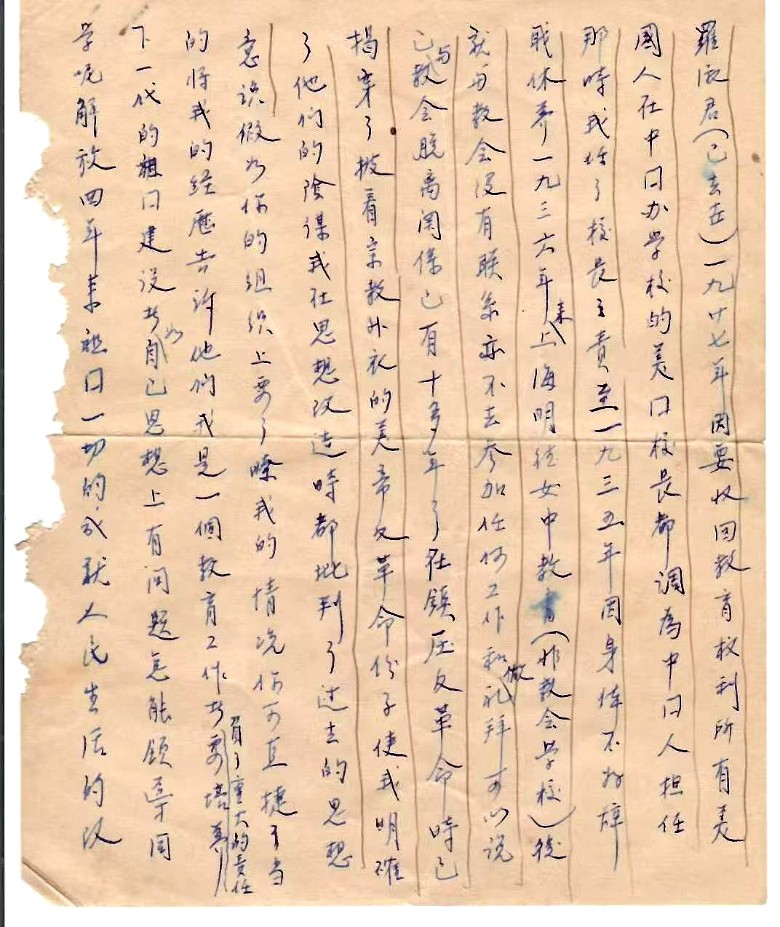 羅淑君（已去在）一九廿七年因要收回教育权利所有美
國人在中囗办学校的美囗校長都調為中囗人担任
那時我任了校長主責至一九三五年因身体不好辞
职休养一九三六年来上海明德女中教書（非教会学校）後
就与教会没有联系亦不去参加任何工作和做礼拜可以说
已与教会脱离関係已有十多年了在鎮压反革命時已
揭穿了披着宗教外衣的美帝反革命份子使我明確
了他们的陰谋我在思想改造時都批判了过去的思想
意识做为你的组织上要了瞭我的情况你可直捷了当
的将我的经歷告许他们我是一個教育工作者負了重大的責任要培养
下一代的祖囗建设者如自己思想上有问题怎能领導同
学呢解放四年来祖囗一切的成就人民生活的改